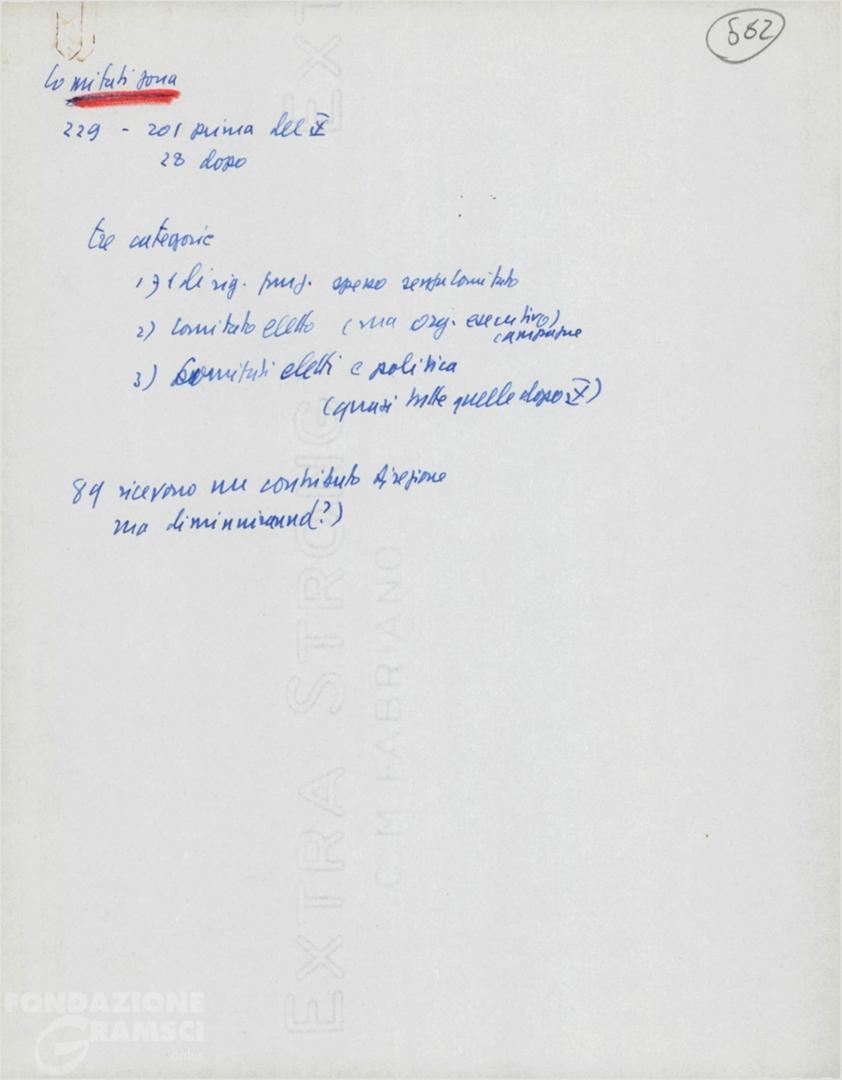 582
Comitati zona
229 - 201 prima del X
28 dopo
tre categorie
1) 1 dirig. funz. spesso senza Comitato
2) Comitato eletto (ma org. esecutivo)
campagne
3) Comitati eletti e politica
(quasi tutte quelle dopo X)
89 ricevono un contributo direzione
ma diminuiranno(?)
EXTRA STRONG EXT
C.M. FABRIANO
FONDAZIONE
GRAMSCI
onlus